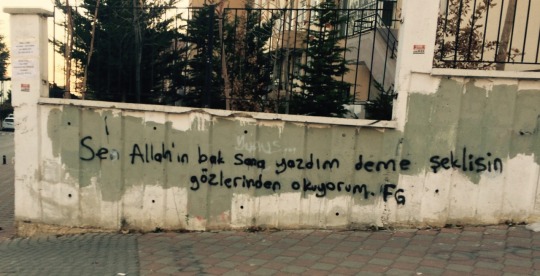 Sen Allah'ın bak sana yazdım deme şeklisin
gözlerinden okuyorum. FG